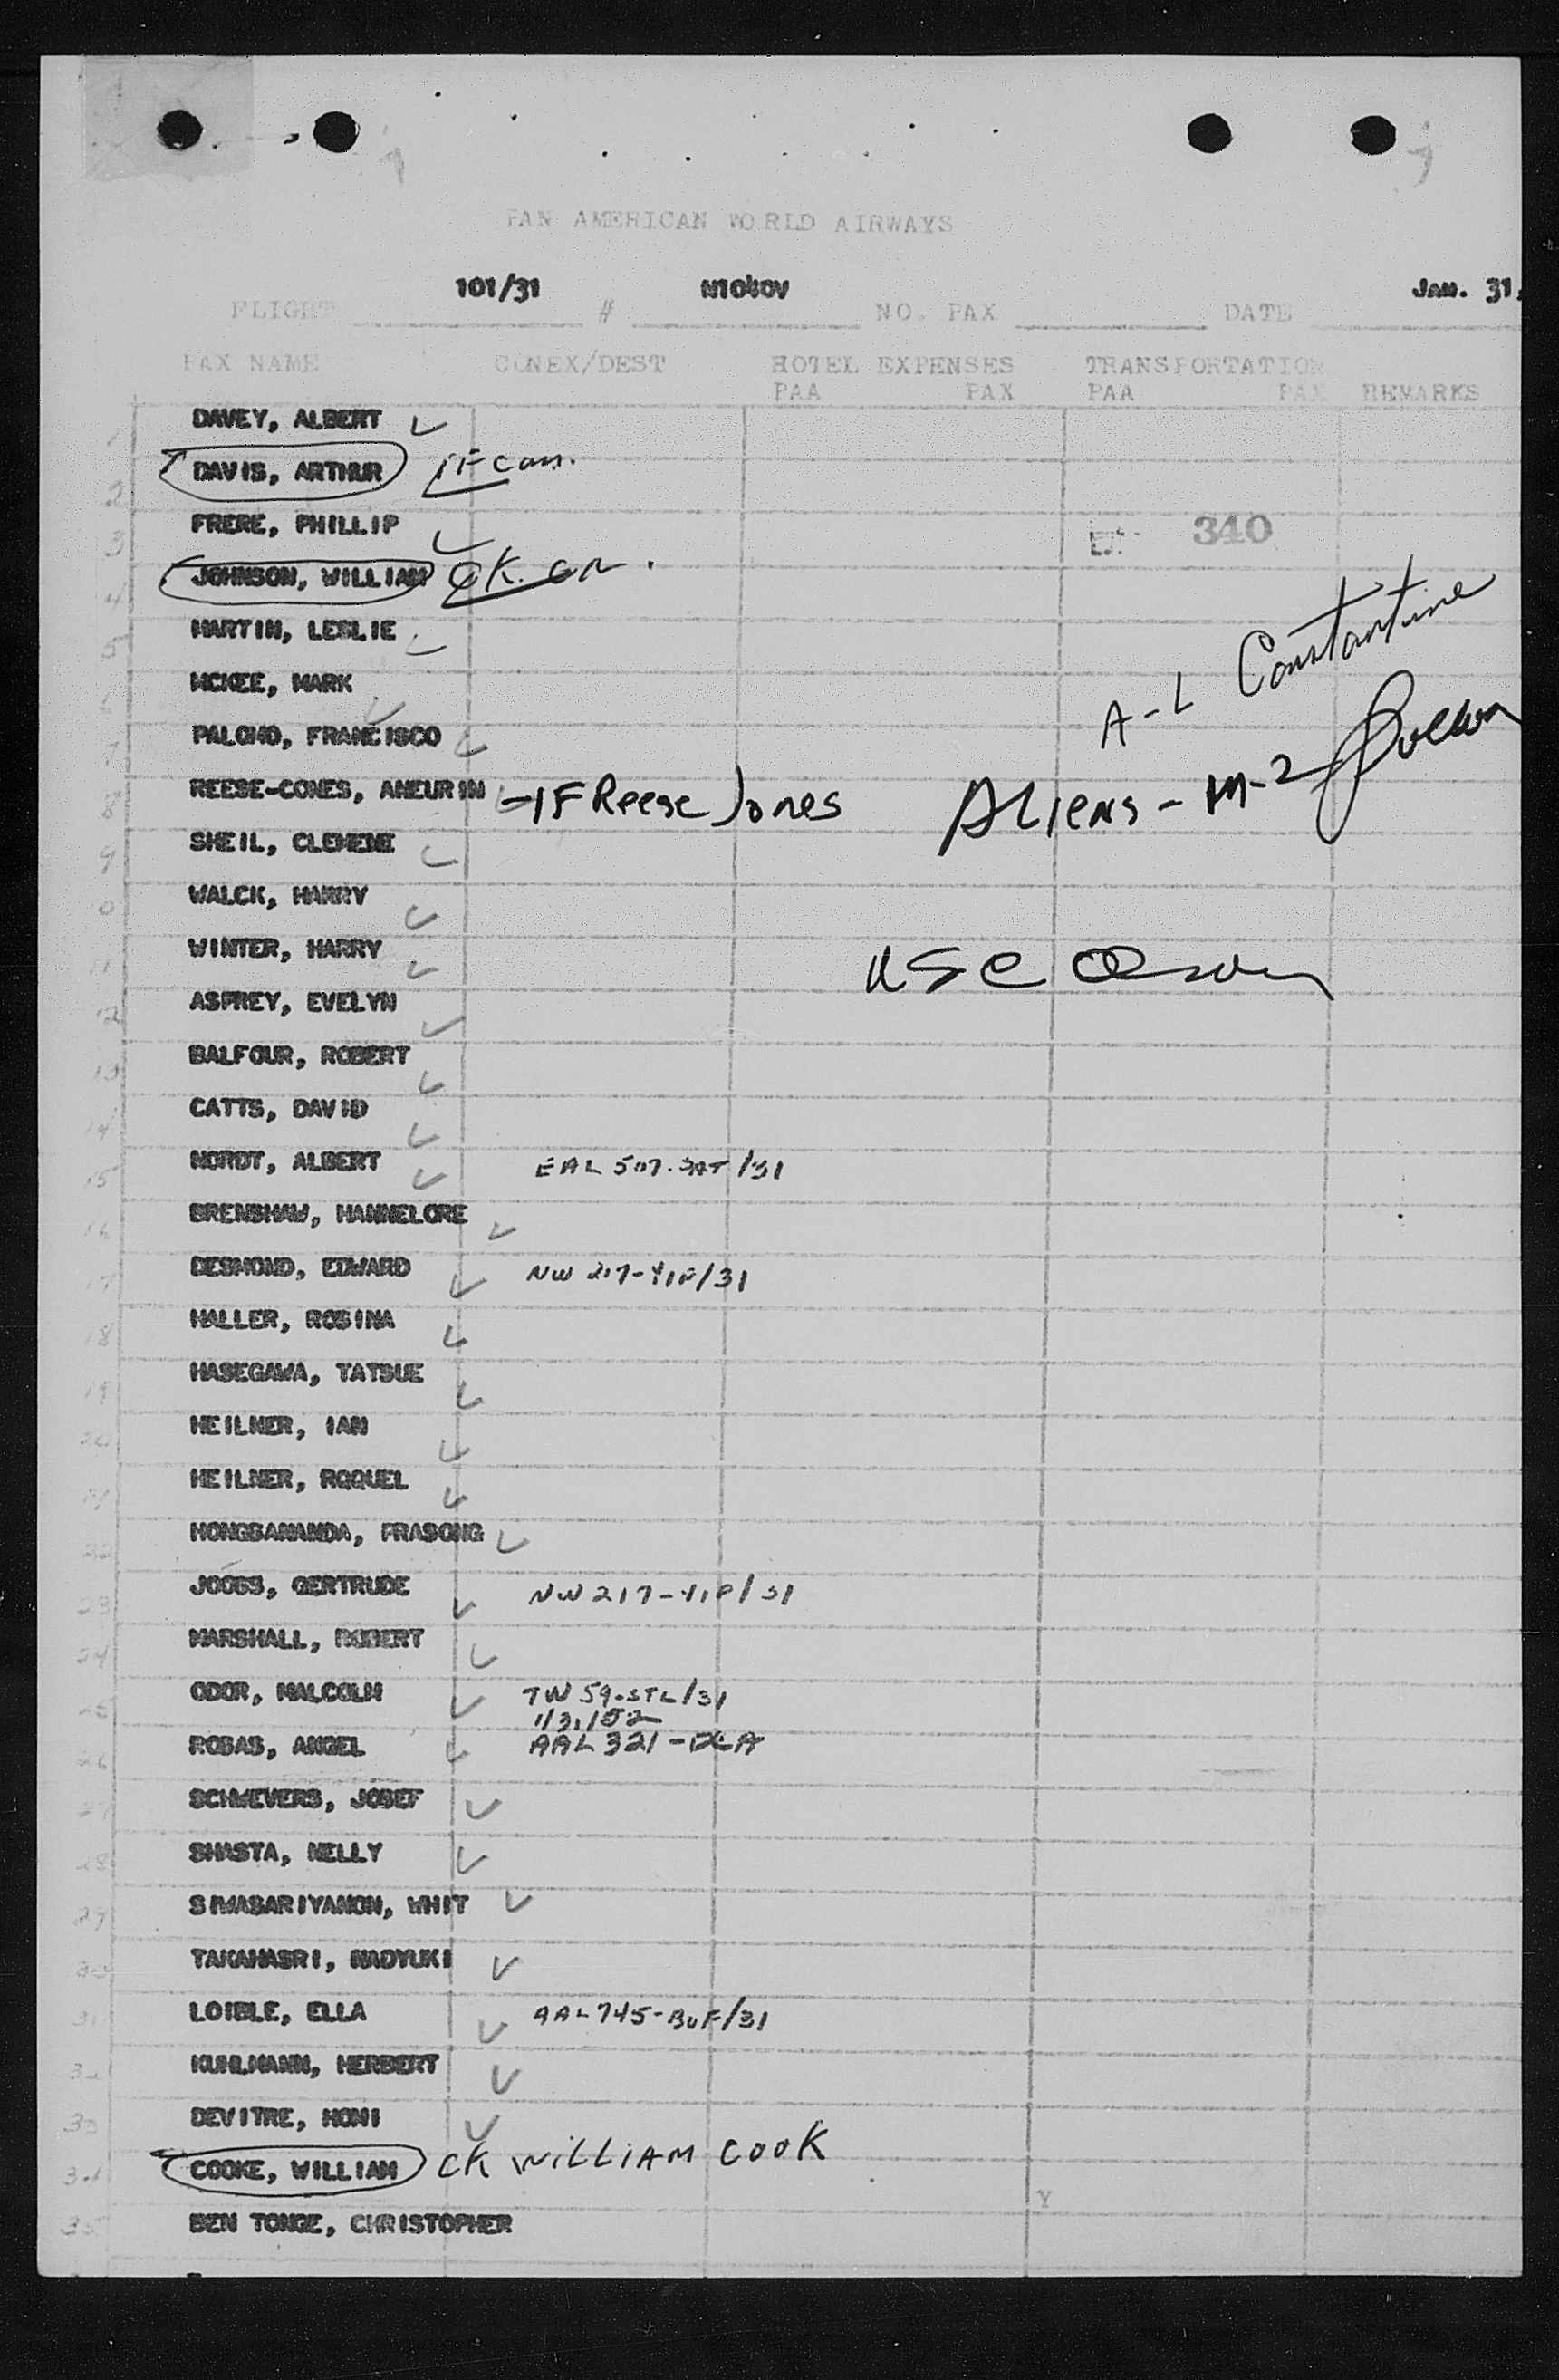 PAN AMERICAN WORLD AIRWAYS
FLIGHT 101/31 # N1040V NO. PAX DATE JAN. 31,
PAX NAME CONEX/DEST HOTEL EXPENSES TRANSPORTATION
PAA PAX PAA PAX REMARKS
1 DAVEY, ALBERT
2 DAVIS, ARTHUR IF can.
3 FRERE, PHILLIP 340
4 JOHNSON, WILLIAM CK. on.
5 MARTIN, LESLIE
A-L Constantine
6 MCKEE, MARK
7 PALOMO, FRANCISCO
8 REESE-CONES, ANEURIN -IF Reese Jones Aliens - M-2
9 SHEIL, CLEMENT
0 WALCK, HARRY
11 WINTER, HARRY
USC
12 ASPREY, EVELYN
13 BALFOUR, ROBERT
14 CATTS, DAVID
15 NORDT, ALBERT EAL 507-SAT/31
16 BRENSHAW, HANNELORE
17 DESMOND, EDWARD NW 217-YIP/31
18 HALLER, ROSINA
19 HASEGAWA, TATSUE
20 HEILNER, IAN
21 HEILNER, ROQUEL
22 HONGSANANDA, PRASONG
23 JOOSS, GERTRUDE NW 217-YIP/31
24 MARSHALL, ROBERT
25 ODOR, MALCOLM TW 59-STL/31
1/31/52
26 ROBAS, ANGEL AAL 321-DCA
27 SCHWEVERS, JOSEF
28 SHASTA, NELLY
29 SIWASARIYANON, WHIT
30 TAKAHASRI, SADYUKI
31 LOIBLE, ELLA AAL 745-BUF/31
32 KUHLMANN, HERBERT
33 DEVITRE, HOMI
34 COOKE, WILLIAM CK WILLIAM COOK
Y
35 BEN TONGE, CHRISTOPHER